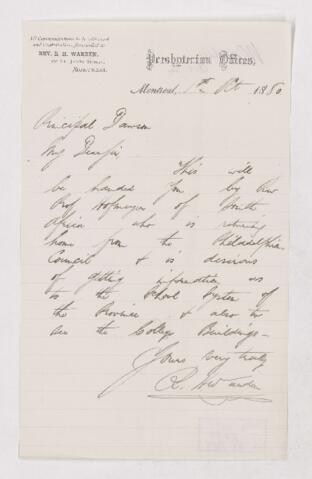 All Communications to be addressed
and Contributions forwarded to
REV. R. H. WARDEN,
St. James Street,
MONTREAL.
Presbyterian Offices,
Montreal, 1880
Principal Dawson
My Dear Sir,
This will
be handed you by Rev
Prof Hofmeyer of South
Africa who is returning
home from the Philadelphia
Council & is desirous
of getting information as
to the School System of
the Province & also to
see the College Buildings -
Yours very truly
R. H. Warden